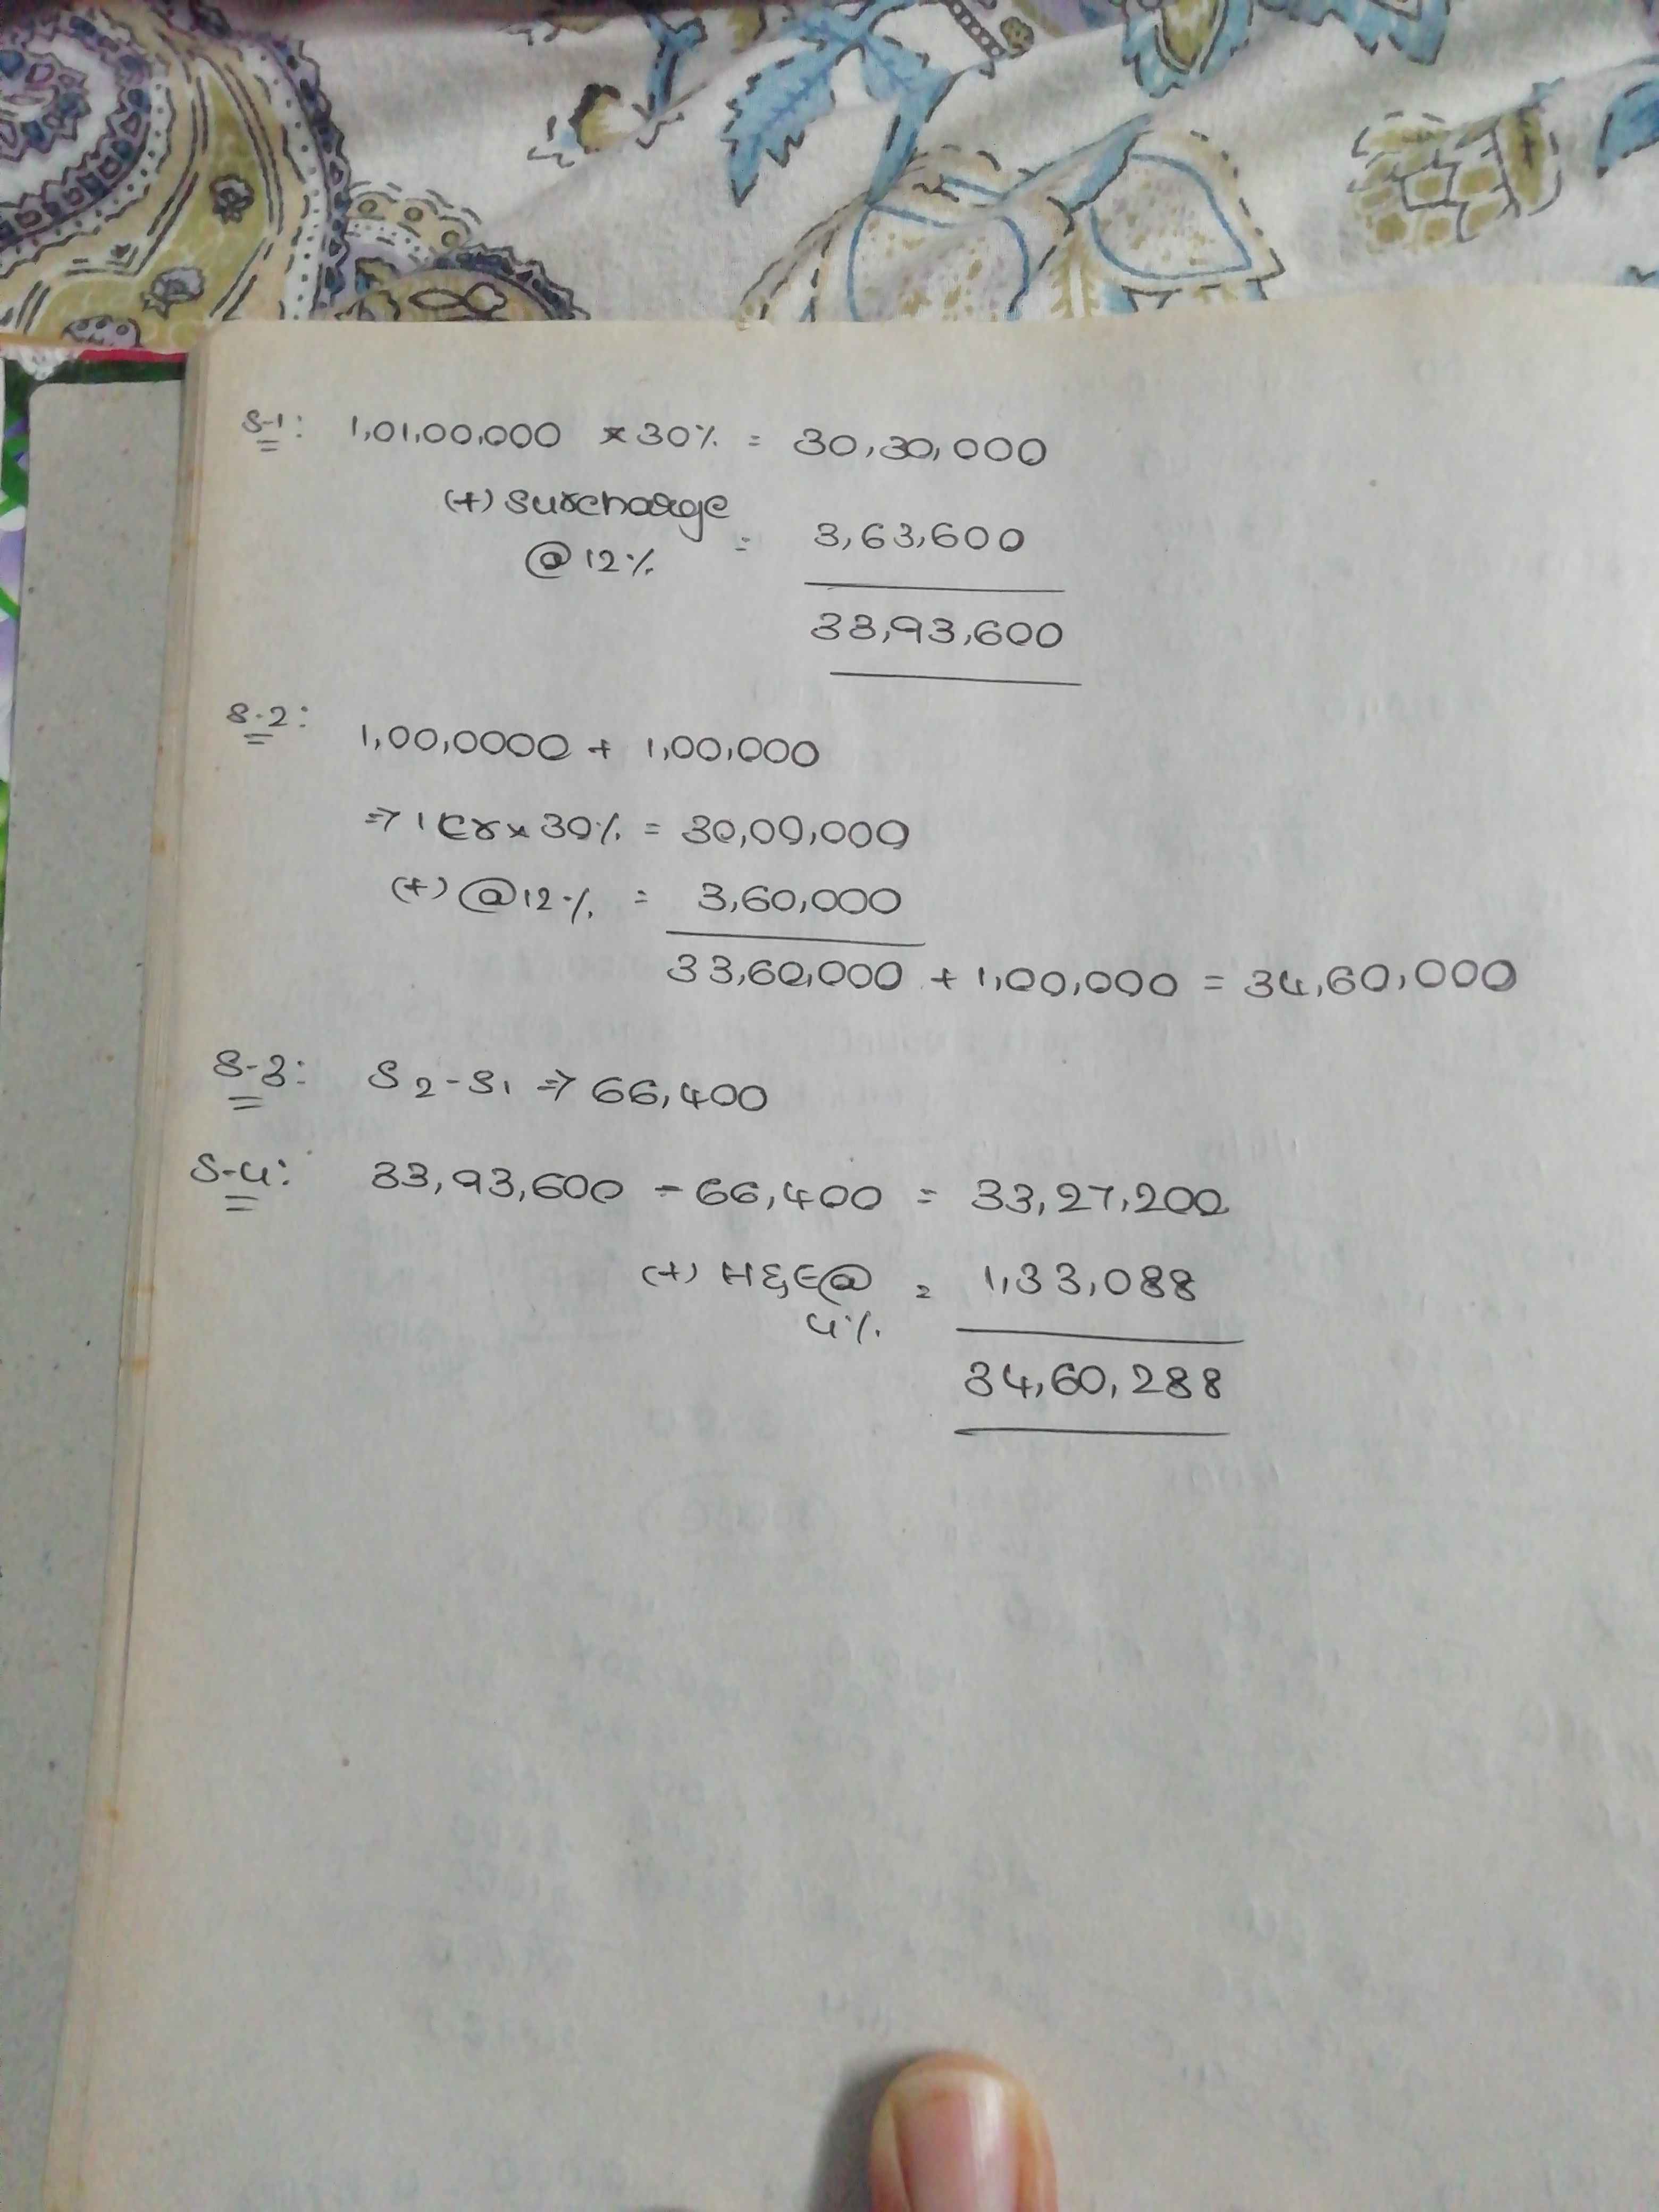 S-1: 1,01,00,000 × 30% = 30,30,000
(+) Surcharge @ 12% = 3,63,600
33,93,600
S-2: 1,00,0000 + 1,00,000
⇒ 1 Cr × 30% = 30,00,000
(+) @ 12% = 3,60,000
33,60,000 + 1,00,000 = 34,60,000
S-3: S2 - S1 ⇒ 66,400
S-4: 33,93,600 - 66,400 = 33,27,200
(+) H&E@ 4% = 1,33,088
34,60,288